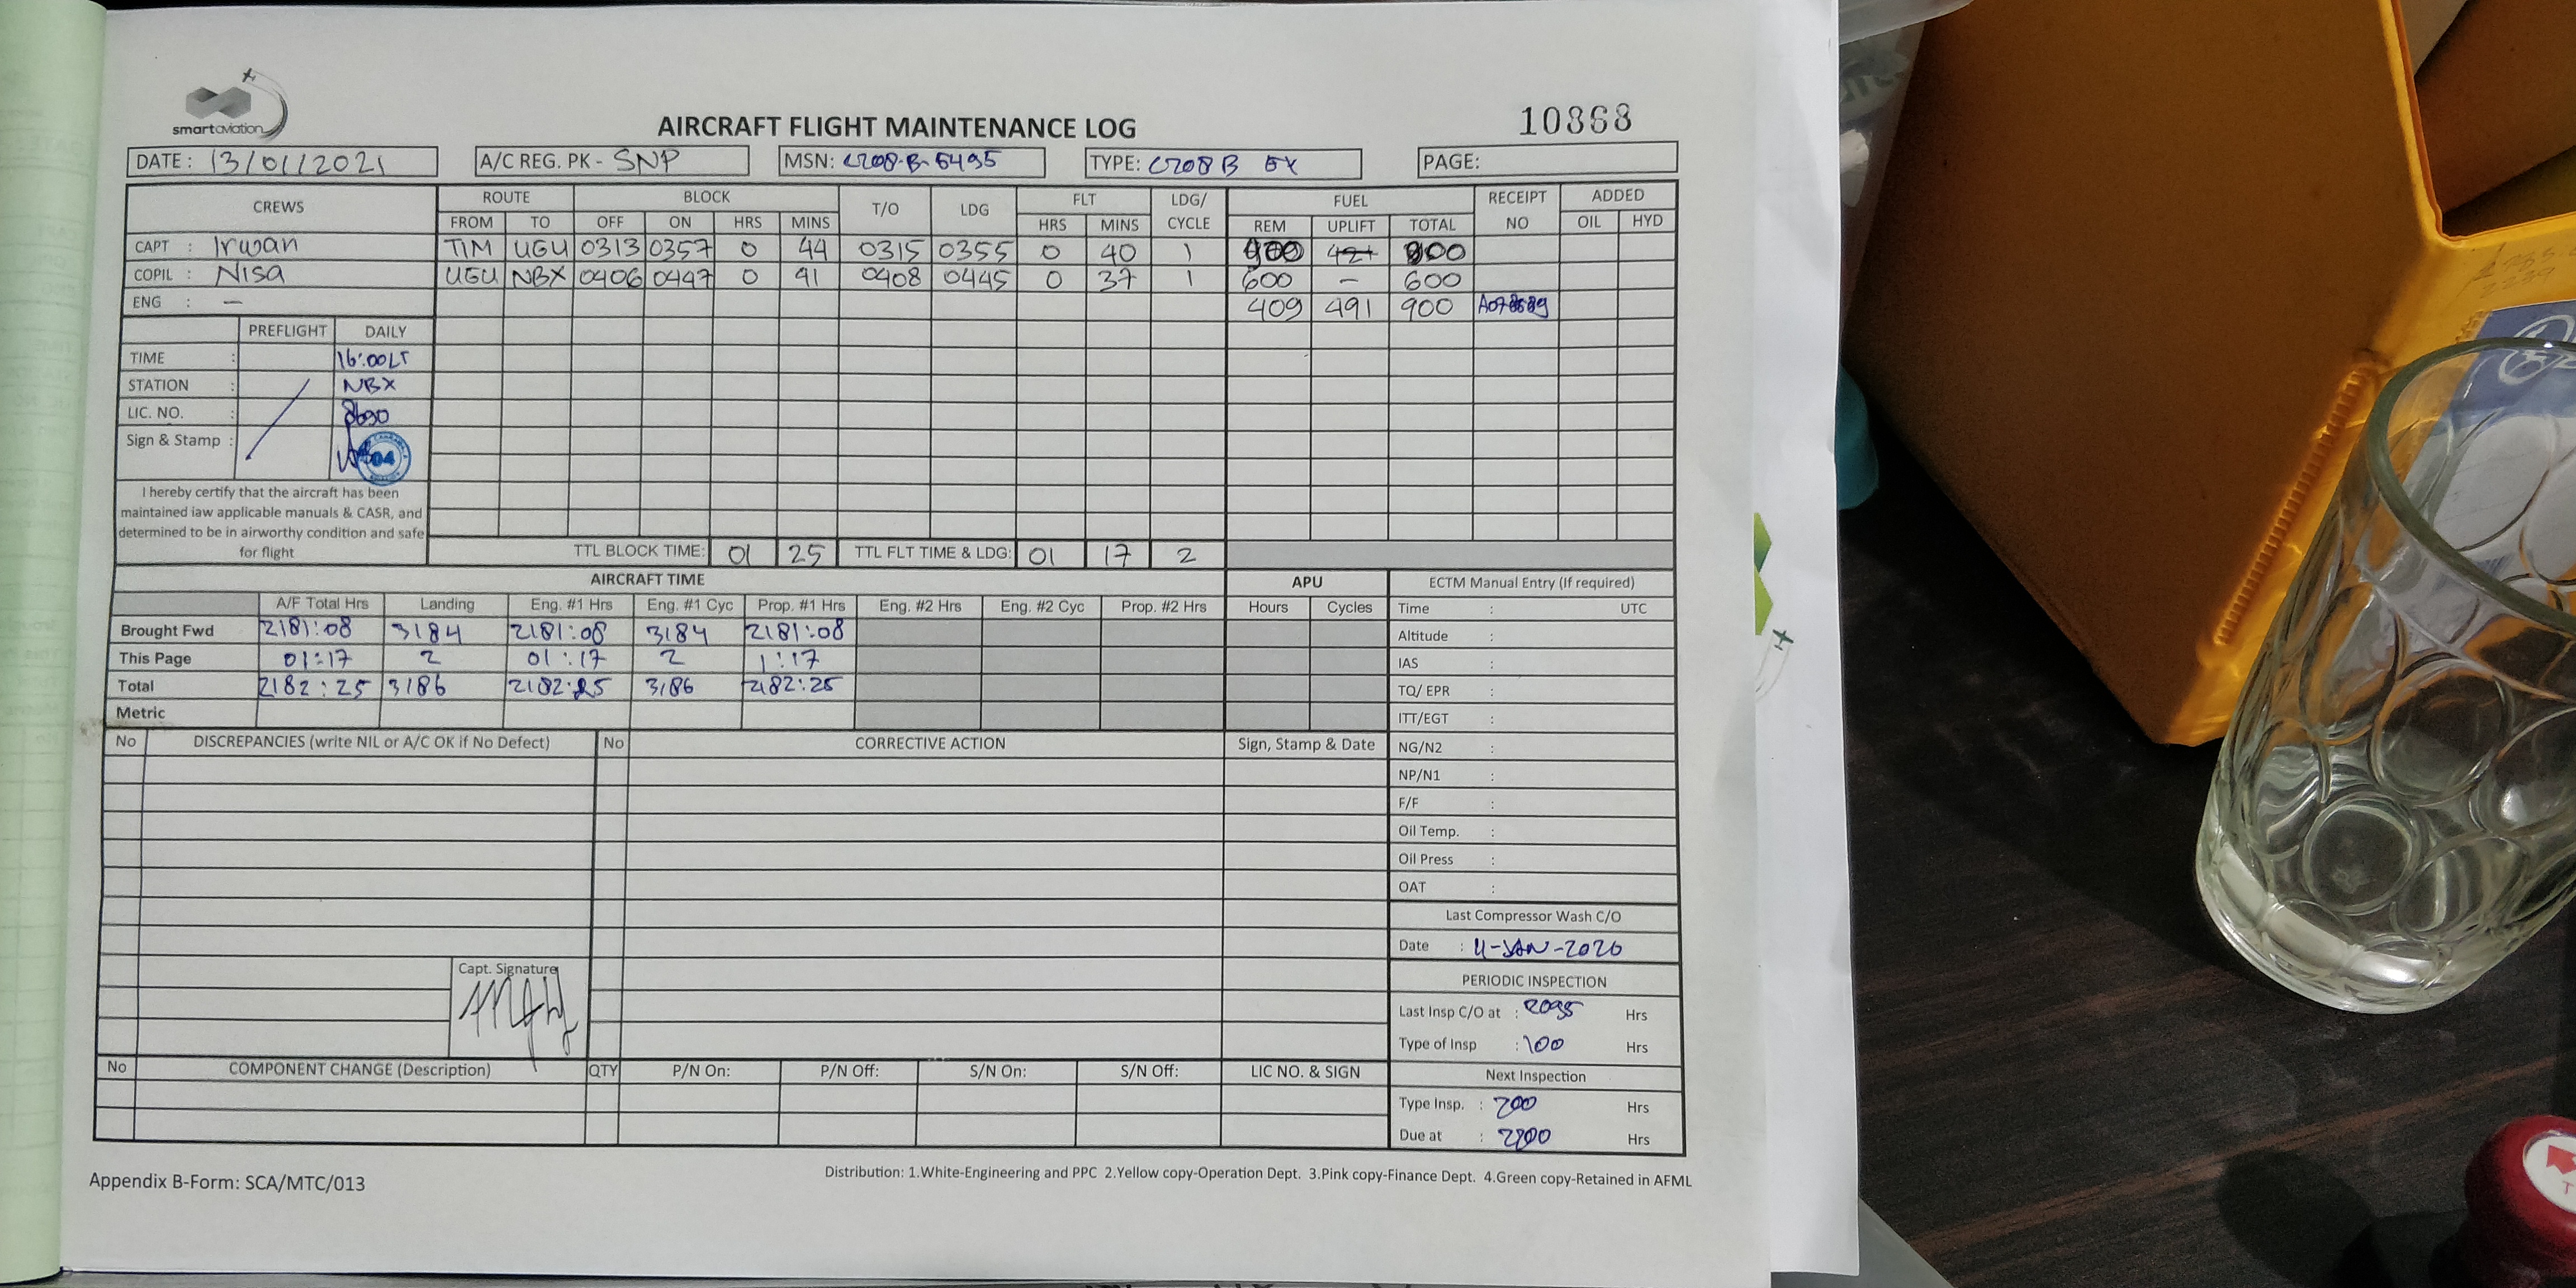 smartaviation
AIRCRAFT FLIGHT MAINTENANCE LOG
10868
DATE : 13/01/2021 A/C REG. PK - SNP MSN: C208-B-5495 TYPE: C208 B EX PAGE:
CREWS ROUTE BLOCK T/O LDG FLT LDG/ CYCLE FUEL RECEIPT NO ADDED
FROM TO OFF ON HRS MINS HRS MINS REM UPLIFT TOTAL OIL HYD
CAPT : Irwan TIM UGU 0313 0357 0 44 0315 0355 0 40 1 900 421 900
COPIL : Nisa UGU NBX 0406 0447 0 41 0408 0445 0 37 1 600 – 600
ENG : – 409 491 900
PREFLIGHT DAILY
TIME : 16:00LT
STATION : NBX
LIC. NO. : 8690
Sign & Stamp : 04
I hereby certify that the aircraft has been
maintained iaw applicable manuals & CASR, and
determined to be in airworthy condition and safe
for flight
TTL BLOCK TIME: 01 25 TTL FLT TIME & LDG: 01 17 2
AIRCRAFT TIME APU ECTM Manual Entry (If required)
A/F Total Hrs Landing Eng. #1 Hrs Eng. #1 Cyc Prop. #1 Hrs Eng. #2 Hrs Eng. #2 Cyc Prop. #2 Hrs Hours Cycles Time : UTC
Brought Fwd 2181:08 3184 2181:08 3184 2181:08 Altitude :
This Page 01:17 2 01:17 2 1:17 IAS :
Total 2182:25 3186 2182:25 3186 2182:25 TQ/ EPR :
Metric ITT/EGT :
No DISCREPANCIES (write NIL or A/C OK if No Defect) No CORRECTIVE ACTION Sign, Stamp & Date NG/N2 :
NP/N1 :
F/F :
Oil Temp. :
Oil Press :
OAT :
Last Compressor Wash C/O
Date : 11-JAN-2020
Capt. Signature
PERIODIC INSPECTION
Last Insp C/O at : 2095 Hrs
Type of Insp : 100 Hrs
No COMPONENT CHANGE (Description) QTY P/N On: P/N Off: S/N On: S/N Off: LIC NO. & SIGN Next Inspection
Type Insp. : 200 Hrs
Due at : 2200 Hrs
Appendix B-Form: SCA/MTC/013
Distribution: 1.White-Engineering and PPC 2.Yellow copy-Operation Dept. 3.Pink copy-Finance Dept. 4.Green copy-Retained in AFML